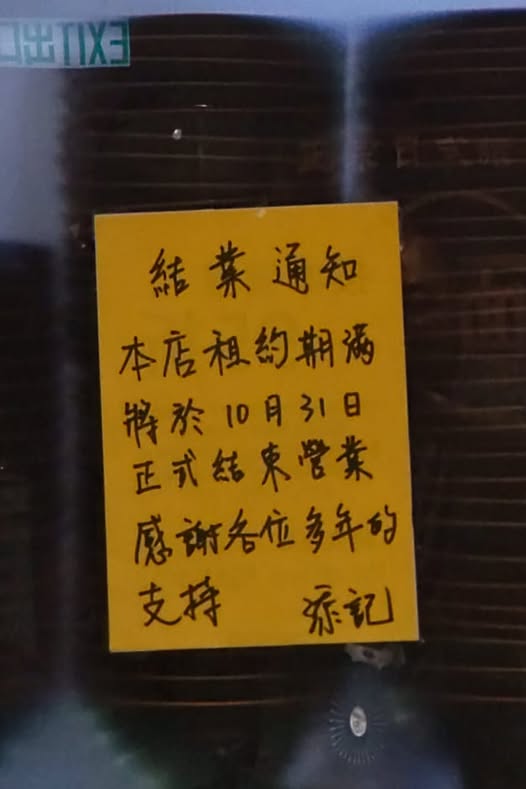 EXIT出口
結業通知
本店租約期滿
將於10月31日
正式結束營業
感謝各位多年的
支持 添記